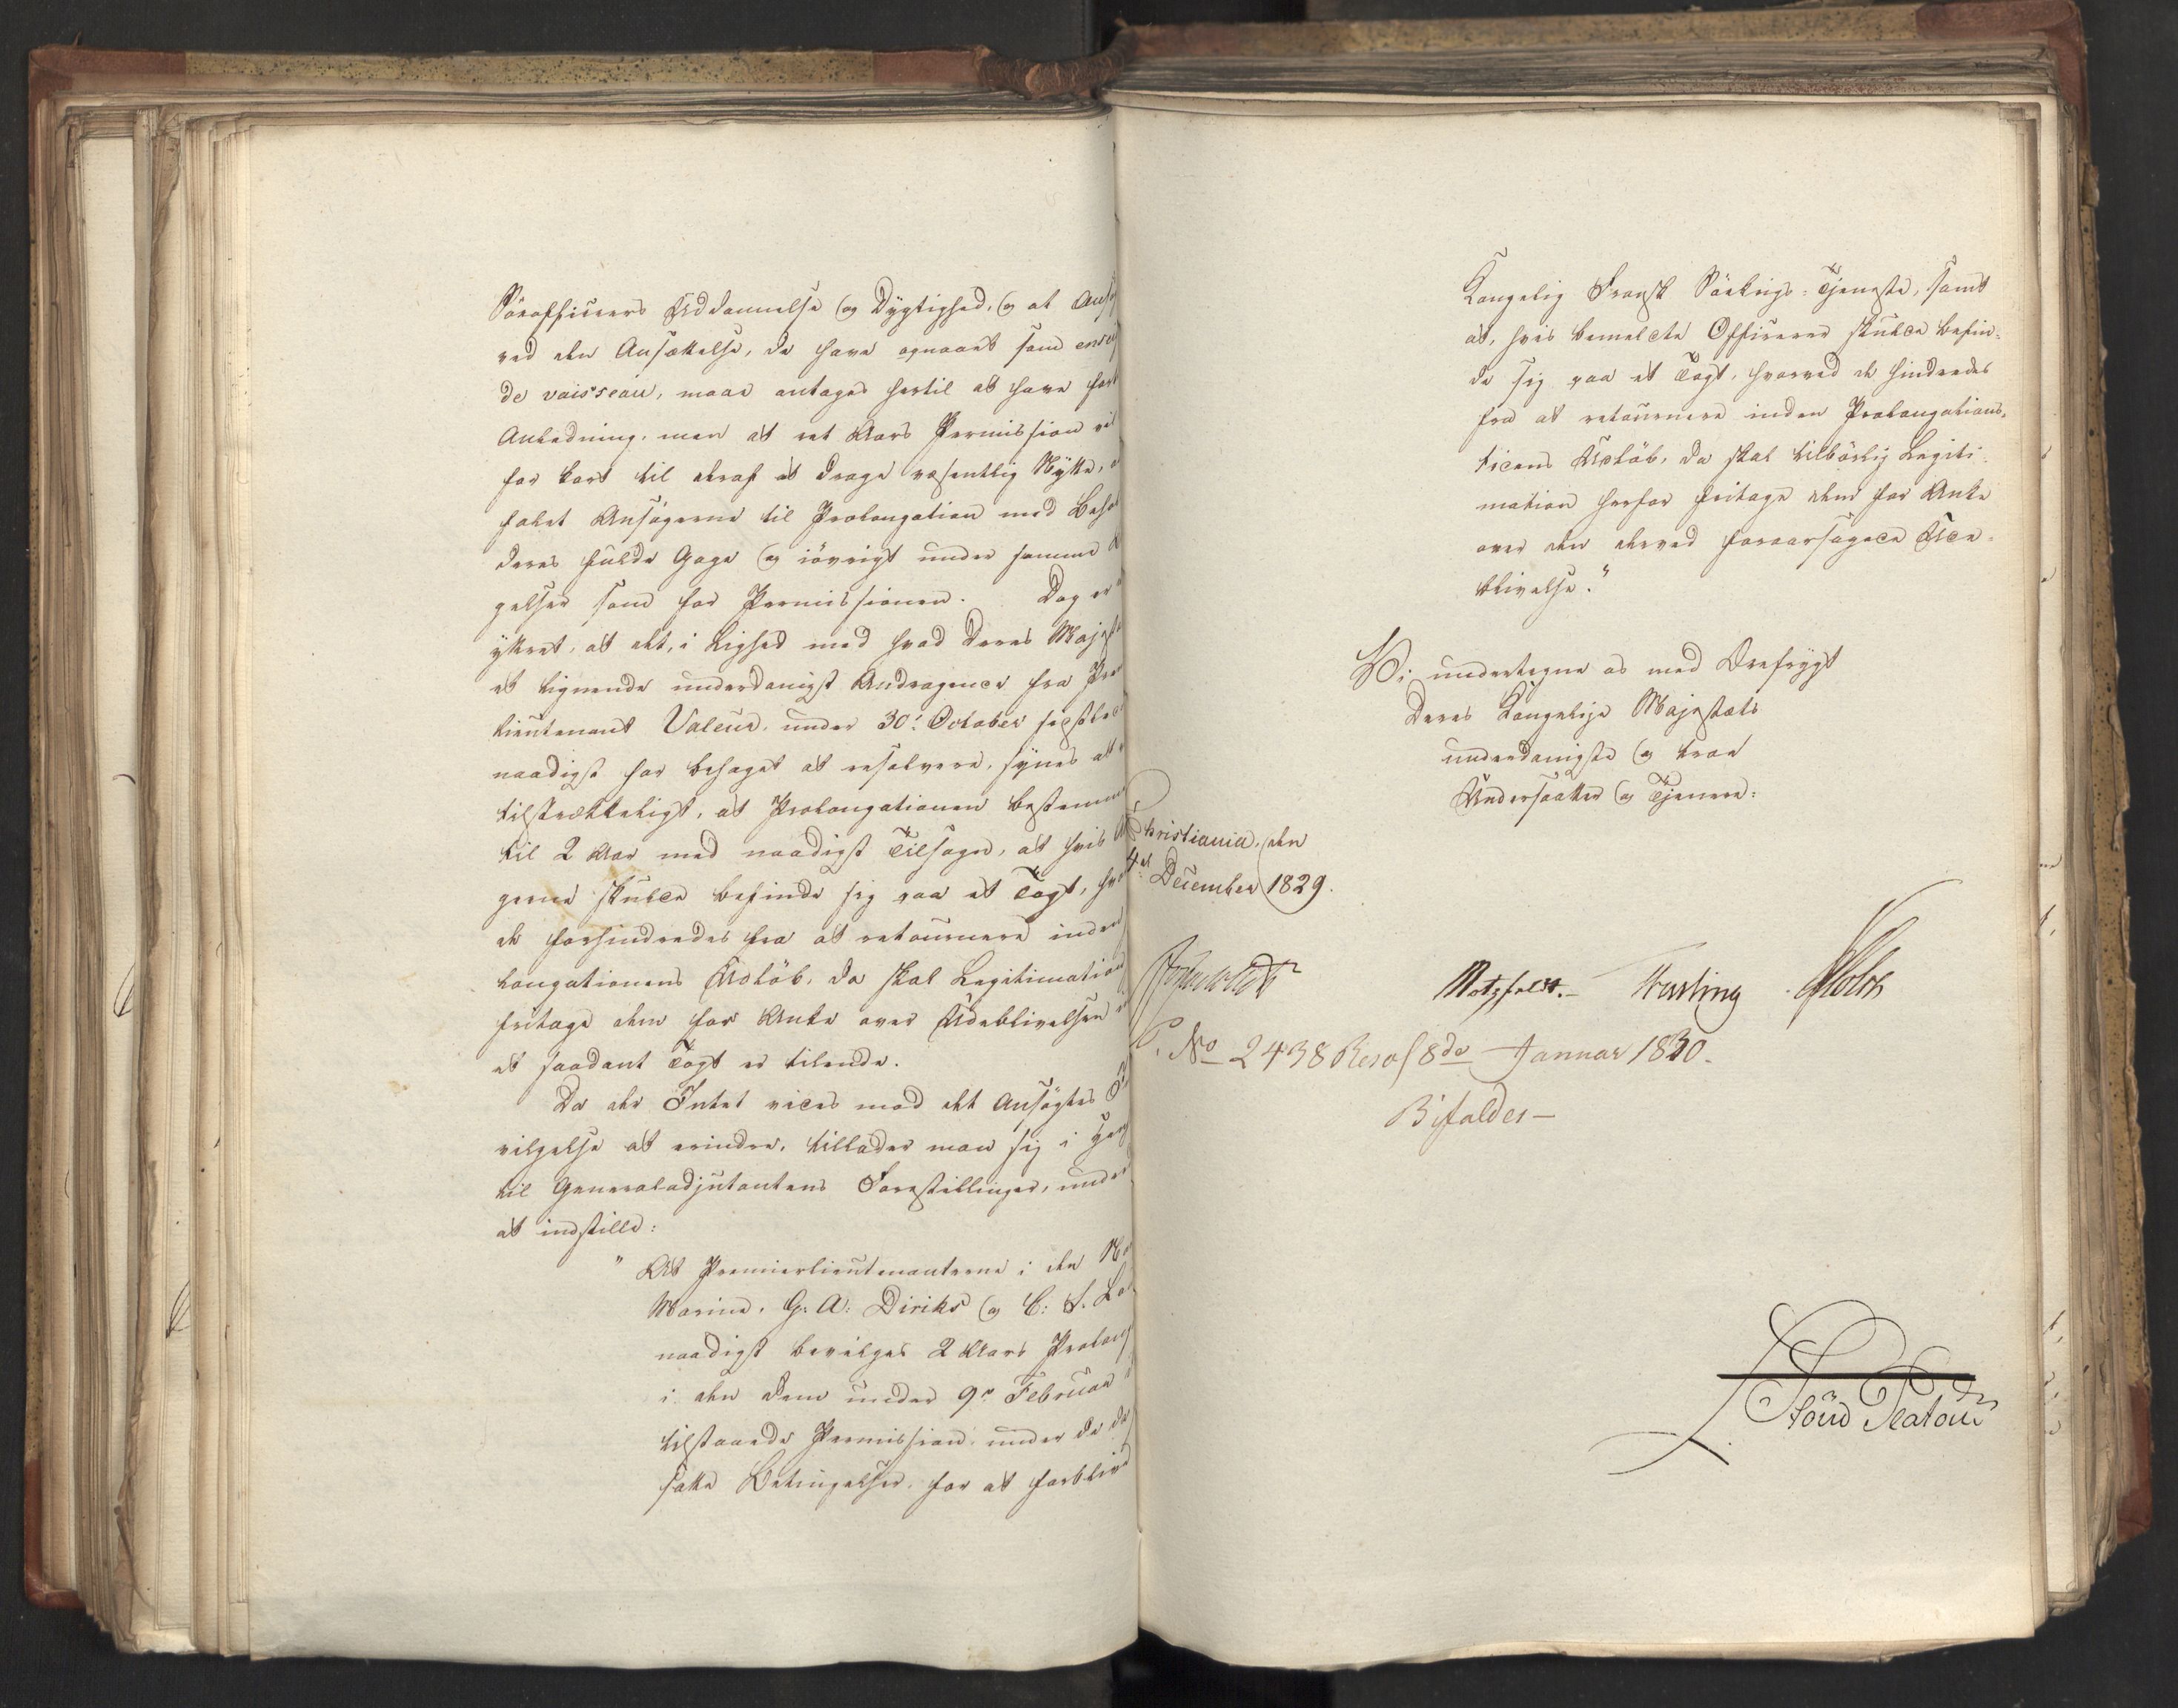 Söeofficeers Uddannelse og Dygtighed, og at Ansö
ved den Ansættelse, de have opnaaet som enseig
de vaisseau, maae antages hertil at have fort
Anledning, men at eet Aars Permission vil
for kort til deraf at drage væsentlig Nytte,
faldet Ansögerne til Prolongation med Behol
deres fulde Gage og iövrigt under samme B
gelser som for Permissionen. Dog er
yttret, at det, i Lighed med hvad Deres Majestæ
et lignende underdanigst Andragende fra Pre
lieutenant Valeur, under 30te October sidstled
naadigst har behaget at resolvere, synes at
tilstrækkeligt, at Prolongationen bestemmes
til 2 Aar med naadigst Tilsagn, at hvis A
gerne skulde befinde sig paa et Togt, hvo
de forhindredes fra at retournere inden
longationens Udlöb, da skal Legitimation
fritage dem for Anke over Udeblivelsen
et saadant Togt er tilende.
Da der Intet vides mod det Ansögtes
vilgelse at erindre, tillader man sig i Hen
til Generaladjutantens Forestillinger, under
at indstille:
" At Premierlieutenanterne i den No
Marine, G: A: Diriks og C: S.
naadigst bevilges 2 Aars Prolong
i den dem under 9de Februar
tilstaaede Permission, under de de
satte Betingelser, for at forblive
Kongelig Fransk Söekrigs-Tjeneste, samt
at, hvis bemeldte Officerer skulde befin-
de sig paa et Togt, hvorved de hindredes
fra at retournere inden Prolongations-
tidens Udlöb, da skal tilbörlig Legiti-
mation herfor fritage dem for Anke
over den derved foraarsagede Ude-
blivelse."
Vi undertegne os med Ærefrygt
Deres Kongelige Majestæts
underdanigste og troe
Undersaatter og Tjenere:
Christiania, den
4de December 1829.
Motzfeldt.- Fasting Holst
No 2438 Resol 8de Januar 1830.
Bifaldes-